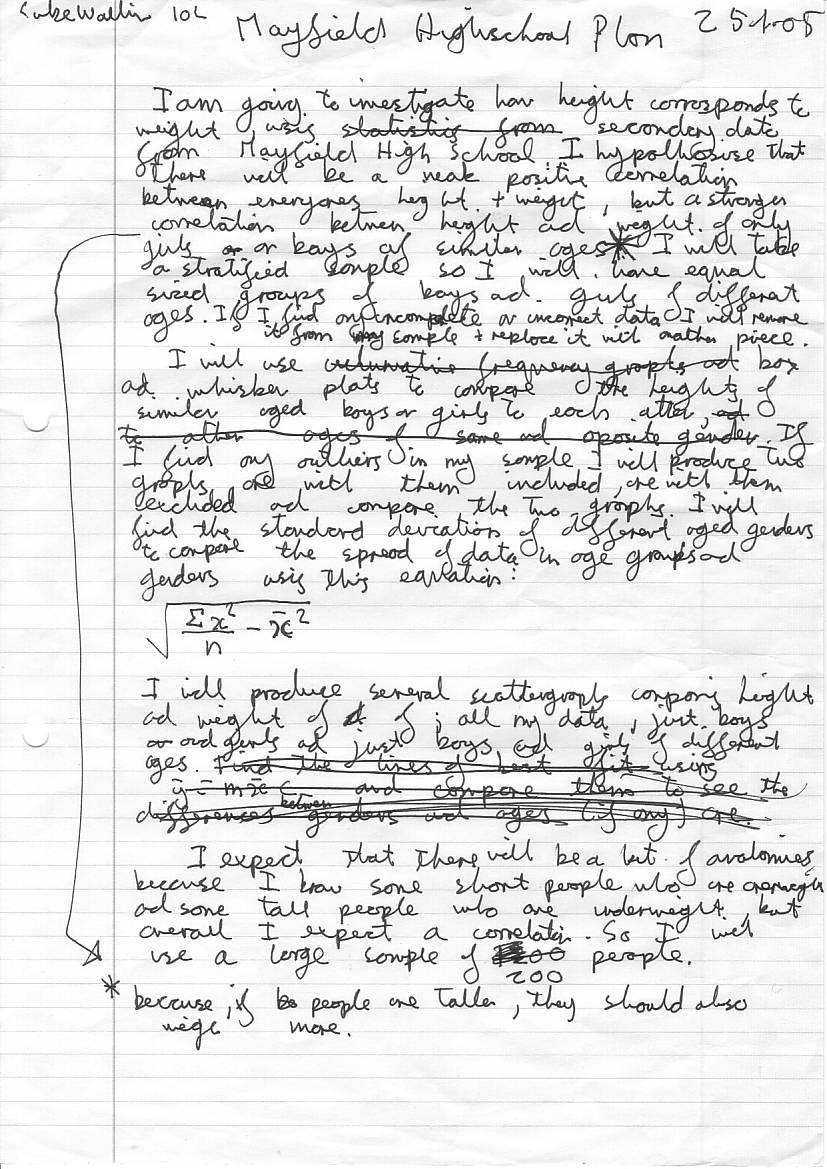 Luke Wallin 10L
Mayfield Highschool Plan 25-1-05
I am going to investigate how height corresponds to
weight, using statistics from secondary data
from Mayfield High School. I hypothosise that
there will be a weak positive correlation
between everyones height + weight, but a stronger
correlation between height and weight of only
girls or or boys of similar ages* I will take
a stratified sample so I will have equal
sized groups of boys and girls of different
ages. If I find any incomplete or incorrect data I will remove
it from my sample + replace it with another piece.
I will use culumative frequency graphs and box
and whisker plots to compare the heights of
similar aged boys or girls to each other, and
to other ages of same and oposite gender. If
I find any outliers in my sample I will produce two
graphs one with them included, one with them
excluded and compare the two graphs. I will
find the standard deviation of different aged genders
to compare the spread of data in age groups and
genders using this equation:
√(Σx²/n - x̄²)
I will produce several scattergraphs comparing height
and weight of of ; all my data, just boys
or and girls and just boys and girls of different
ages. Find the lines of best fit using
ȳ = mx̄ c and compare them to see the
differences between genders and ages (if any) are.
I expect that there will be a lot of avalomies,
because I know some short people who are overweight
and some tall people who are underweight, but
overall I expect a correlation. So I will
use a large sample of people.
200
* because, if people are taller, they should also
weigh more.